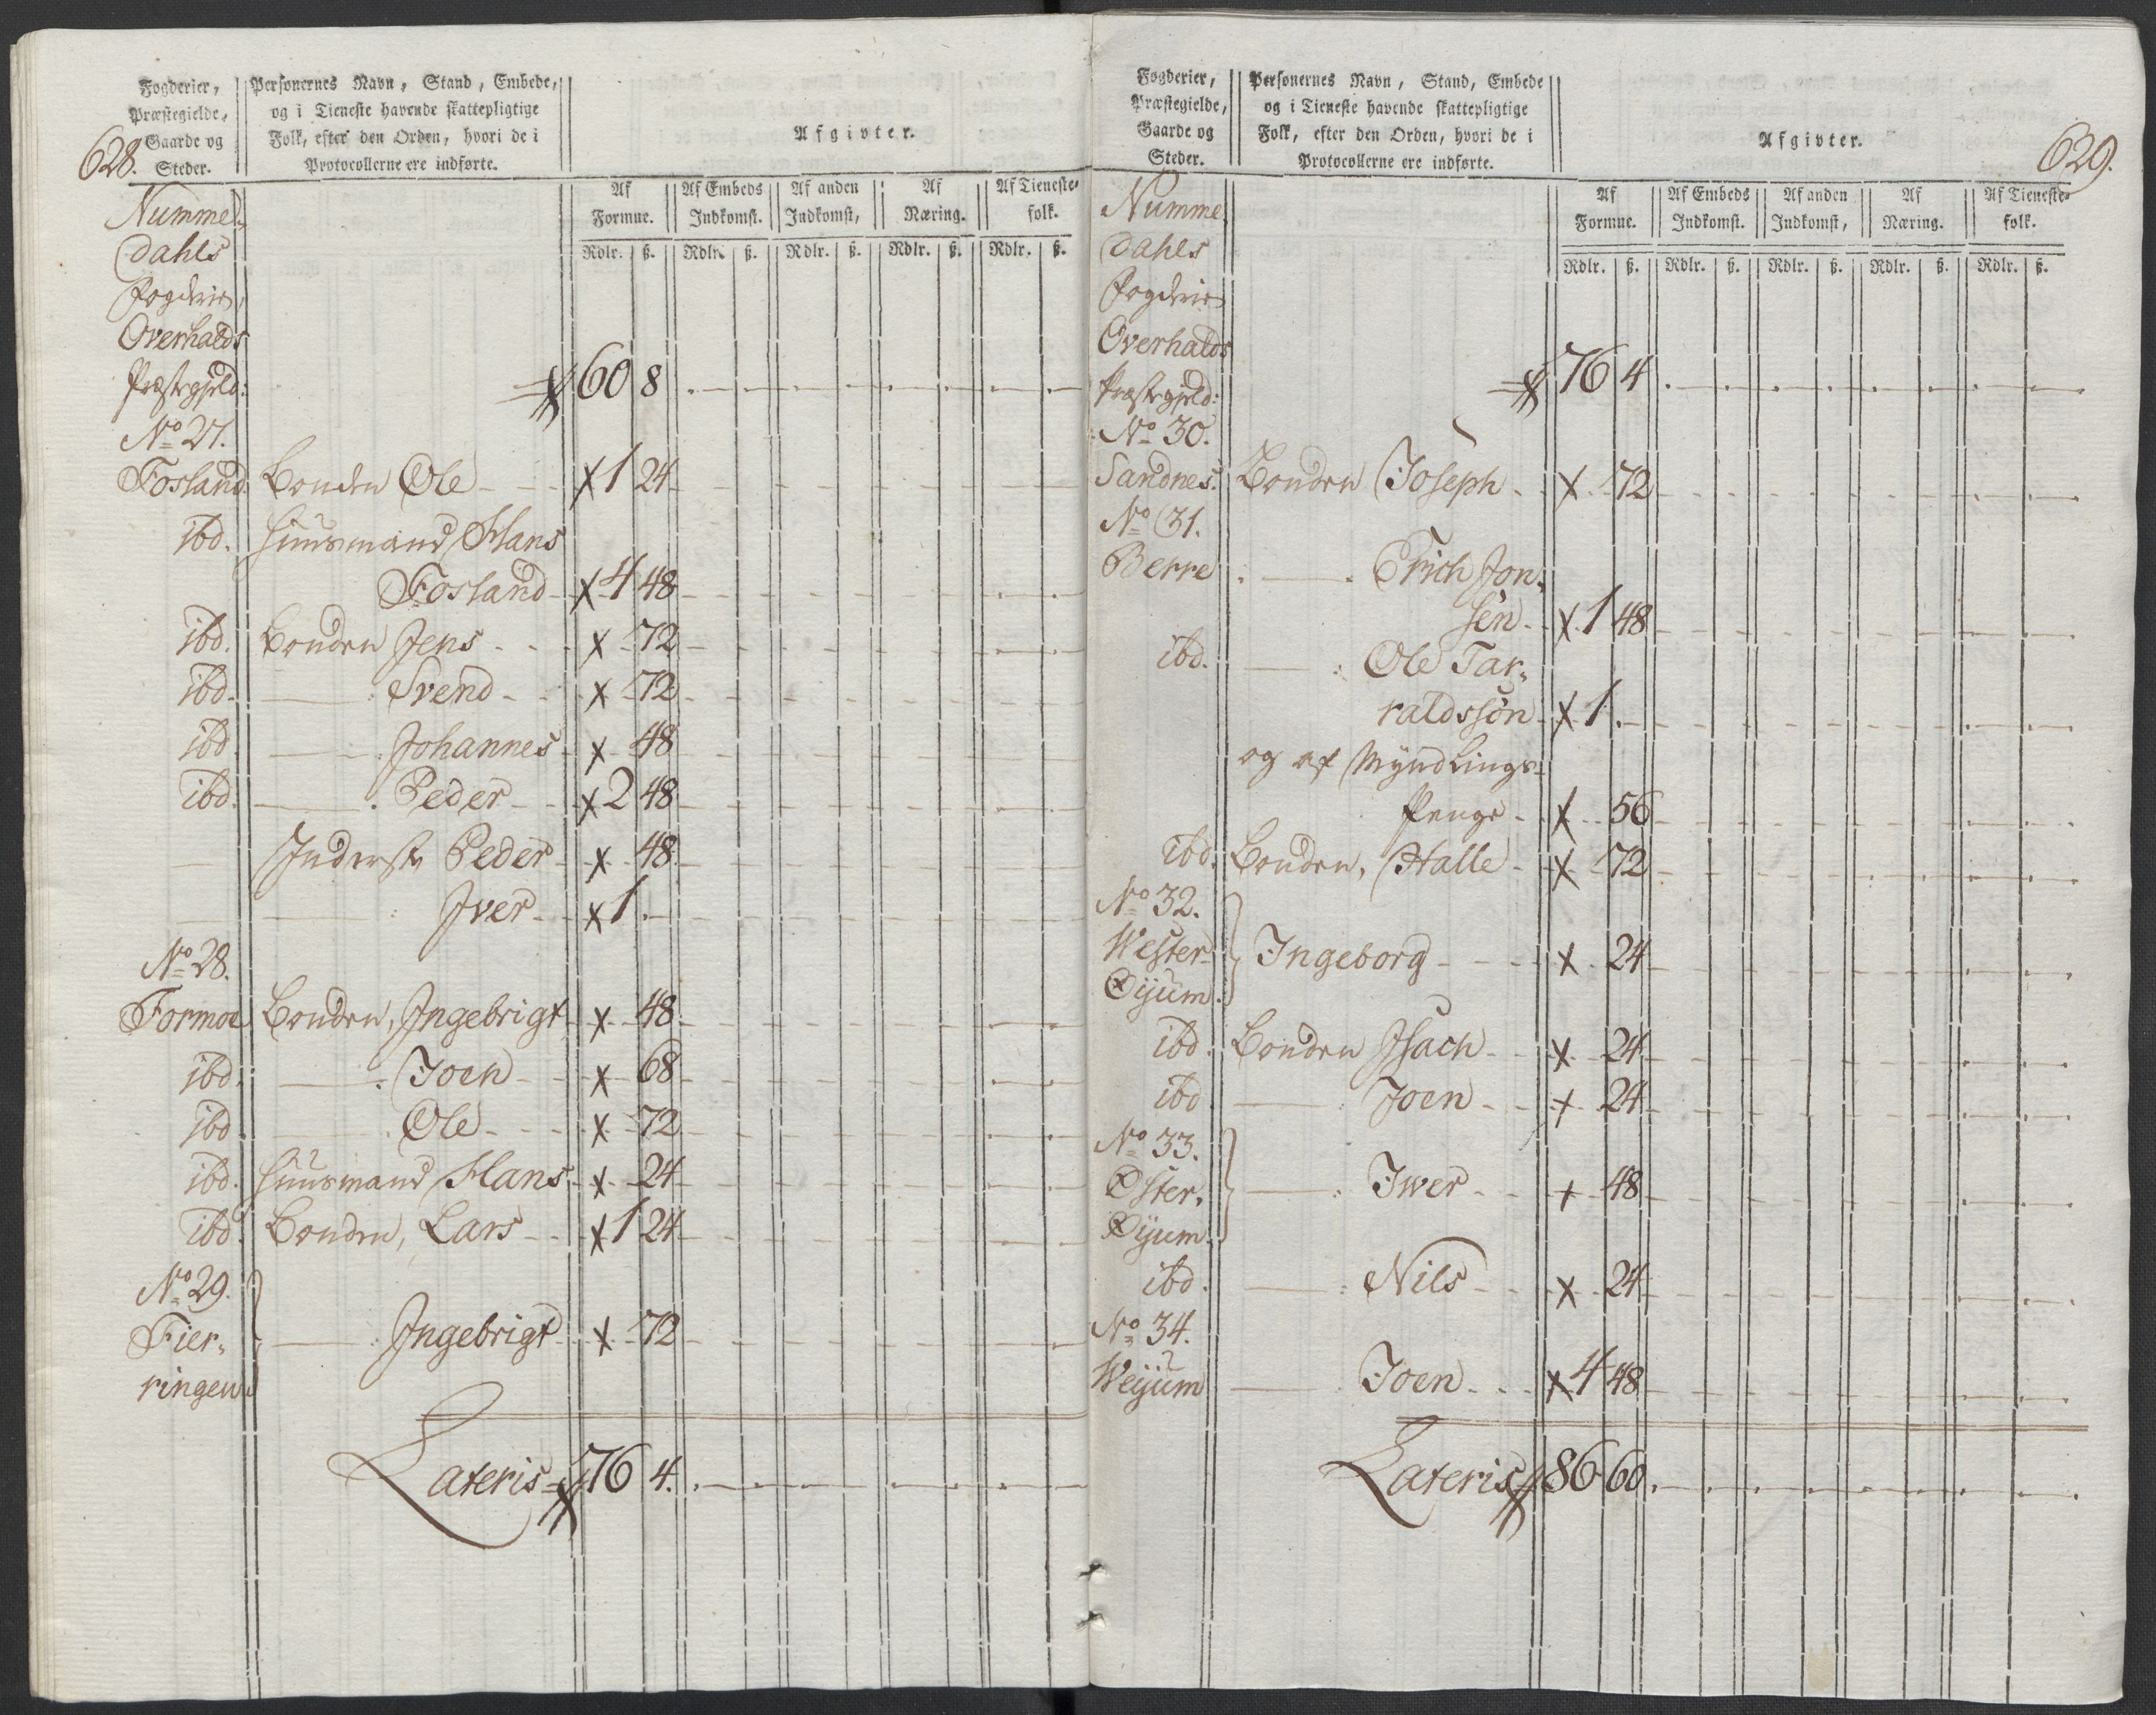 628.
Fogderier,
Præstegielde,
Gaarde og
Steder.
Personernes Navn, Stand, Embede,
og i Tieneste havende skattepligtige
Folk, efter den Orden, hvori de i
Protocollerne ere indførte.
Afgivter.
Af Formue. Af Embeds Indkomst. Af anden Indkomst, Af Næring. Af Tieneste-folk.
Rdlr. ß. Rdlr. ß. Rdlr. ß. Rdlr. ß. Rdlr. ß.
Numme-
dahls
Fogderie,
Overhalds
Præstegjeld: 60 8
No 27.
Fosland Bonden Ole x 1 24
ibd. Huusmand Hans
Fosland x 4 48
ibd. Bonden Jens x 72
ibd. — : Svend x 72
ibd — : Johannes x 48
ibd. — : Peder x 2 48
— Inderste Peder x 48
— — : Iver x 1 .
No 28.
Formoe Bonden, Ingebrigt x 48
ibd. — : Joen x 68
ibd. — : Ole x 72
ibd. Huusmand Hans x 24
ibd. Bonden, Lars x 1 24
No 29.
Fier-
— : Ingebrigt x 72
ringen
Lateris 76 4.
629.
Fogderier,
Præstegielde,
Gaarde og
Steder.
Personernes Navn, Stand, Embede
og i Tieneste havende skattepligtige
Folk, efter den Orden, hvori de i
Protocollerne ere indførte.
Afgivter.
Af Formue. Af Embeds Indkomst. Af anden Indkomst, Af Næring. Af Tieneste-folk.
Rdlr. ß. Rdlr. ß. Rdlr. ß. Rdlr. ß. Rdlr. ß.
Numme
dahls
Fogderie
Overhalds
Præstegjeld: 76 4
No 30.
Sandnes. Bonden Joseph x 72
No 31.
Berre — . Erich Jon-
sen x 1 48
ibd. — : Ole Tar-
raldssøn x 1 .
og af Myndlings-
Penge x 56
ibd. Bonden, Halle x 72
No 32.
Wester-
Øijum. Ingeborg x 24
ibd. Bonden Isach x 24
ibd — : Joen x 24
No 33.
Øster- — : Iwer x 48
Øijum.
ibd. — : Nils x 24
No 34.
Weijum — : Joen x 4 48
Lateris 86 60.